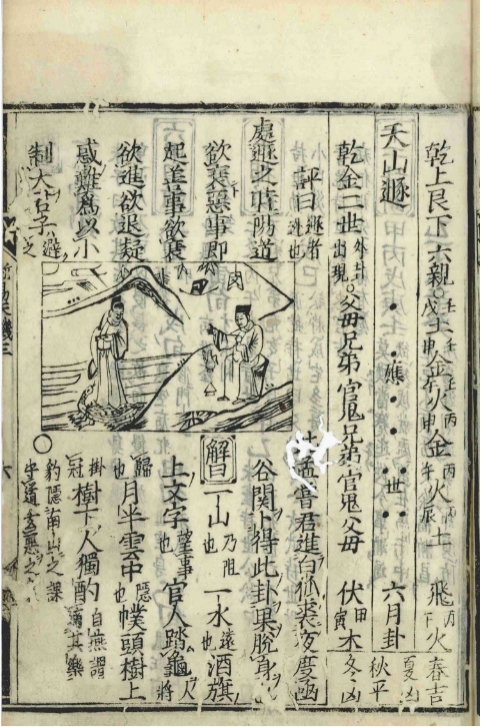 乾上艮下六親。土壬戌金壬申火壬午金丙申火丙午土丙辰飛丙午火
春吉
夏凶
秋平
冬凶
天山遯
應 世 六月卦
乾金二世外卦出現。父母兄弟官鬼兄弟官鬼父母 伏甲寅木
評曰遯者退也
處遯之時陽道
欲衰惡事即
起善事欲衰
欲進欲退疑
惑難為以小
制大君子避之
孟嘗君進白狐裘夜度函
谷關卜得此卦果脫身
解曰一山乃阻也一水遠也酒旗
上文字望事也官人踏龜人將
歸也月半雲中隱也幞頭樹上
掛冠樹下人獨酌自燕謂適其樂
豹隱南山之課
守道去惡之